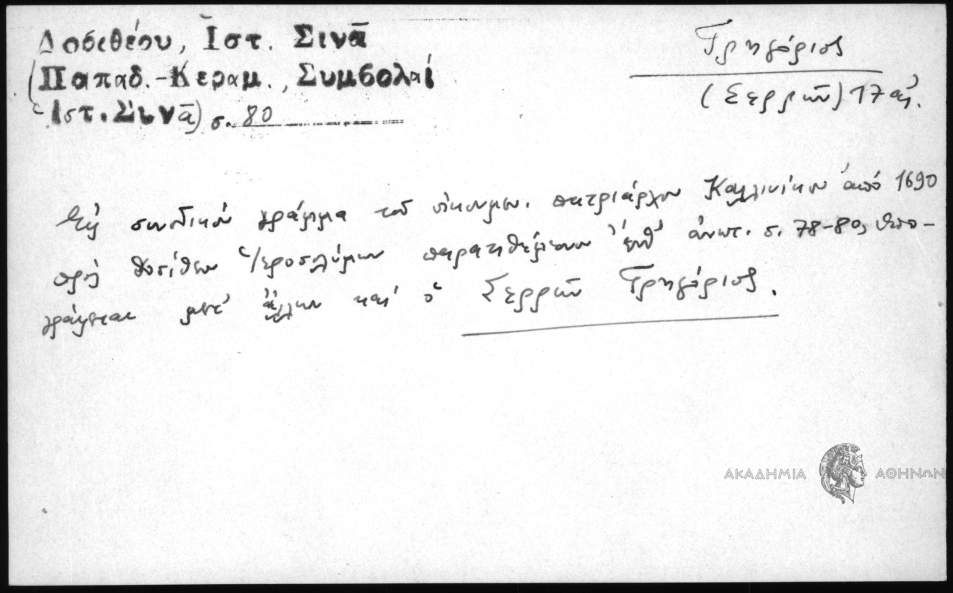 Δοσιθέου, Ιστ. Σινᾶ
(Παπαδ.-Κεραμ., Συμβολαί
Ιστ. Σινᾶ) σ. 80
Γρηγόριος
(Σερρῶν) 17 αἰ.
Εἰς συνοδικόν γράμμα τοῦ οἰκουμεν. πατριάρχου Καλλινίκου ἀπό 1690
πρός Δοσίθεον Ἱεροσολύμων παρατιθέμενον ἐνθ' ἀνωτ. σ. 78-80, ὑπο-
γράφεται μετ' ἄλλων καί ὁ Σερρῶν Γρηγόριος.
ΑΚΑΔΗΜΙΑ ΑΘΗΝΩΝ